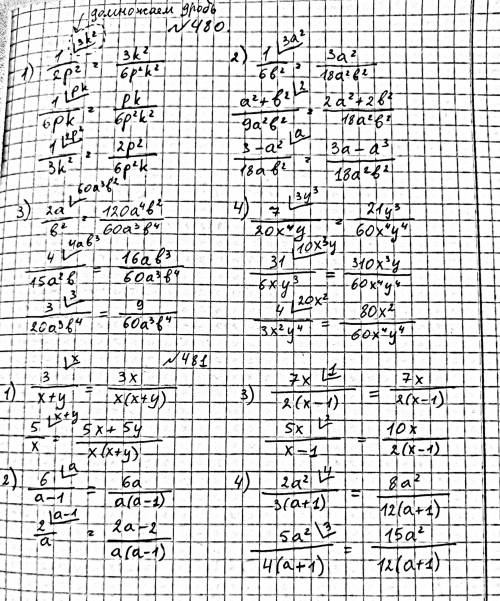 домножаем дробь
№480.
1) 1/2p² ⌊3k² = 3k²/6p²k²
1/6pk ⌊pk = pk/6p²k²
1/3k² ⌊2p² = 2p²/6p²k
2) 1/6b² ⌊3a² = 3a²/18a²b²
a²+b²/9a²b² ⌊2 = 2a²+2b²/18a²b²
3-a²/18ab² ⌊a = 3a-a³/18a²b²
3) 2a/b² ⌊60a³b² = 120a⁴b²/60a³b⁴
4/15a²b ⌊4ab³ = 16ab³/60a³b⁴
3/20a³b⁴ ⌊3 = 9/60a³b⁴
4) 7/20x⁴y ⌊3y³ = 21y³/60x⁴y⁴
31/6xy³ ⌊10x³y = 310x³y/60x⁴y⁴
4/3x²y⁴ ⌊20x² = 80x²/60x⁴y⁴
№481
1) 3/x+y ⌊x = 3x/x(x+y)
5/x ⌊x+y = 5x+5y/x(x+y)
2) 6/a-1 ⌊a = 6a/a(a-1)
2/a ⌊a-1 = 2a-2/a(a-1)
3) 7x/2(x-1) ⌊1 = 7x/2(x-1)
5x/x-1 ⌊2 = 10x/2(x-1)
4) 2a²/3(a+1) ⌊4 = 8a²/12(a+1)
5a²/4(a+1) ⌊3 = 15a²/12(a+1)